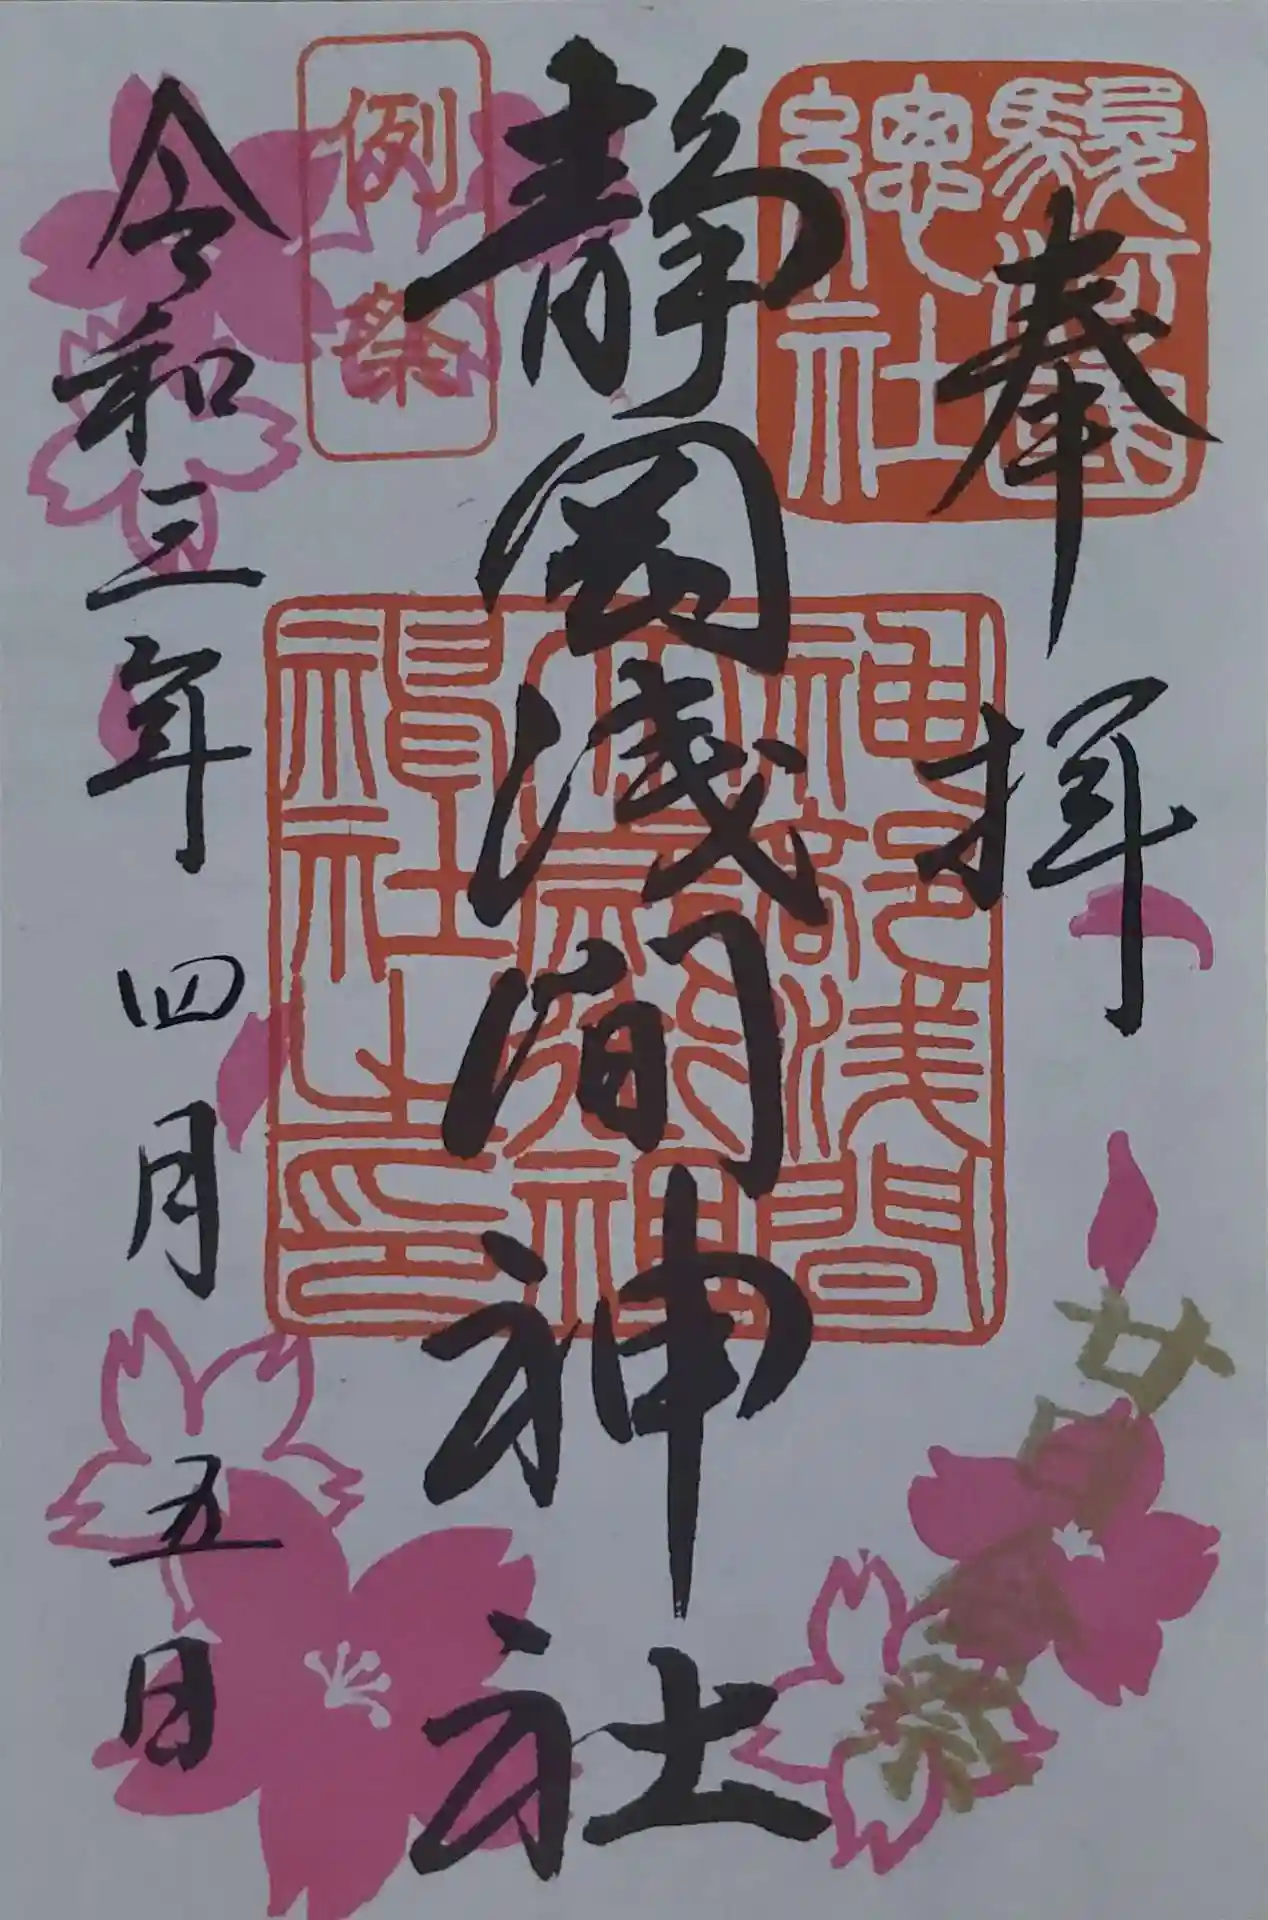 奉拝
駿河國
總社
静岡浅間神社
神部浅間
大歳御祖神
社之印
例祭
令和三年四月五日
廿日会祭